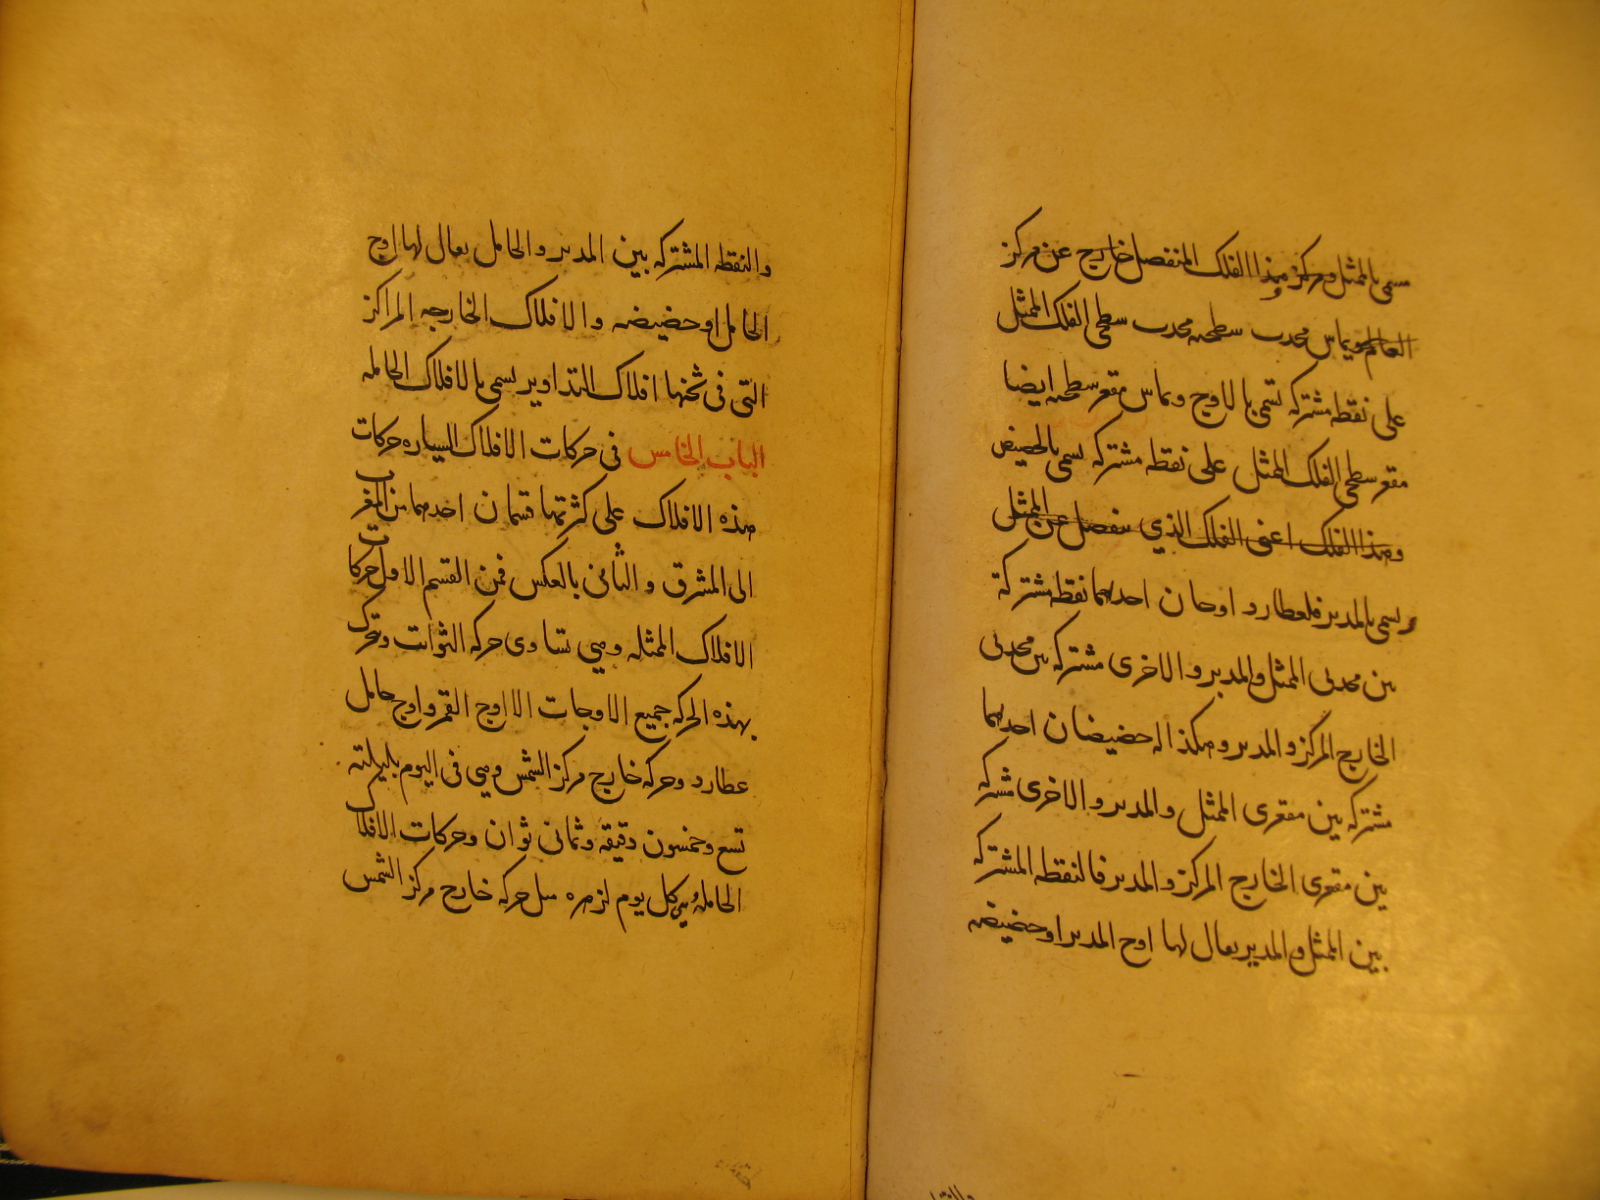 يسمى بالممثل ومركز هذا الفلك المنفصل خارج عن مركز
العالم ويماس محدب سطحيه محدب سطحي الفلك الممثل
على نقطه مشتركه تسمى بالاوج ويماس مقعر سطحيه ايضا
مقعر سطحي الفلك الممثل على نقطه مشتركه يسمى بالحضيض
وهذا الفلك اعنى الفلك الذي ينفصل عن الممثل
يسمى بالمدير فلعطارد اوجان احدهما نقطه مشتركة
بين محدبى الممثل والمدير والاخرى مشتركه بين محدبى
الخارج المركز والمدير وهكذا له حضيضان احدهما
مشتركه بين مقعرى الممثل والمدير والاخرى مشتركه
بين مقعرى الخارج المركز والمدير فالنقطه المشتركه
بين الممثل والمدير يقال لها اوج المدير او حضيضه
والنقطه المشتركه بين المدير والحامل يقال لها اوج
الحامل او حضيضه والافلاك الخارجه المراكز
التى فى ثخنها افلاك التداوير يسمى بالافلاك الحامله
الباب الخامس فى حركات الافلاك السياره حركات
هذه الافلاك على كثرتها قسمان احدهما من المغرب
الى المشرق والثانى بالعكس فمن القسم الاول حركات
الافلاك الممثله وهي تساوى حركه الثوابت وتتحرك
بهذه الحركه جميع الاوجات الا اوج القمر واوج حامل
عطارد وحركه خارج مركز الشمس وهي فى اليوم بليلته
تسع وخمسون دقيقه وثمانى ثوان وحركات الافلاك
الحامله وهي كل يوم لزهره مثل حركه خارج مركز الشمس